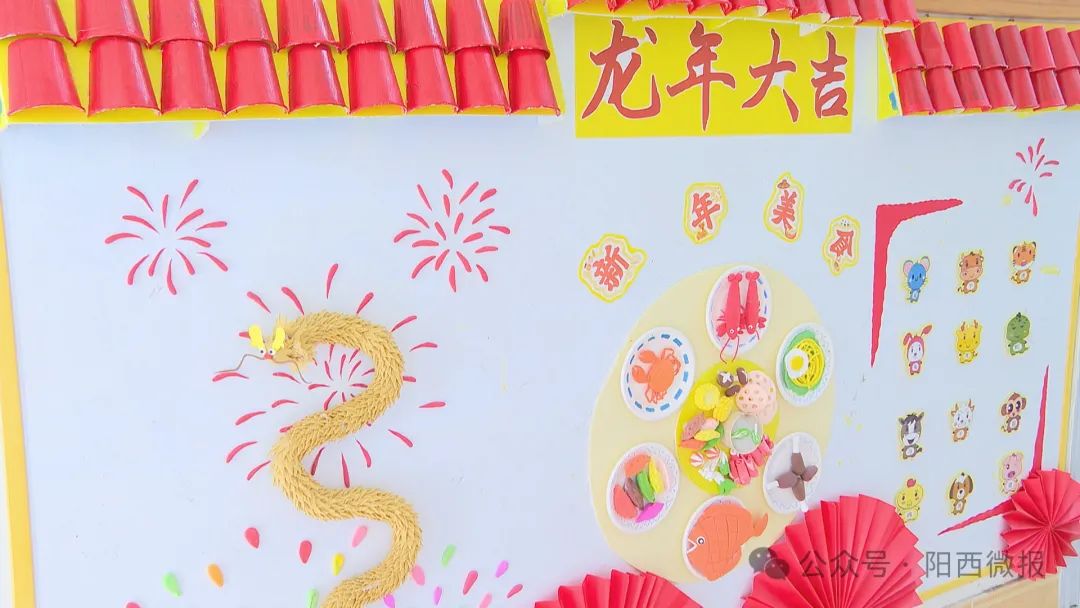 龙年大吉
新年美食
公众号·阳西微报